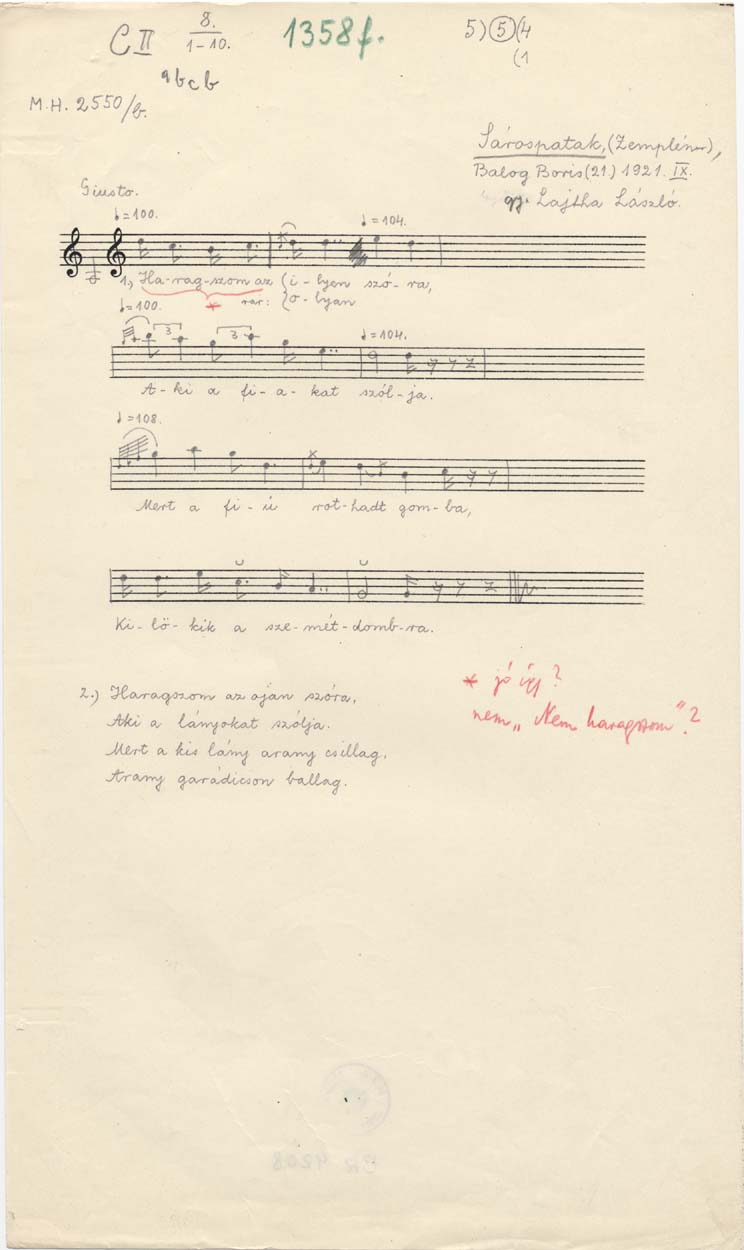 C II 8. 1-10. 1358f. 5) 5 (4
(1
a b c b
M.H. 2550/b.
Sárospatak, (Zemplén),
Balog Boris (21.) 1921. IX.
gy. Lajtha László.
Giusto.
♩=100. ♩=104.
1.) Ha-rag-szom az (i-lyen szó-ra,
* var: (o-lyan
♩=100. 3 3 ♩=104.
A-ki a fi-a-kat szól-ja.
♩=108.
Mert a fi-ú rot-hadt gom-ba,
Ki-lö-kik a sze-mét-domb-ra.
2.) Haragszom az ojan szóra,
Aki a lányokat szólja.
Mert a kis lány arany csillag,
Arany garádicson ballag.
* jó így?
nem „Nem haragszom"?